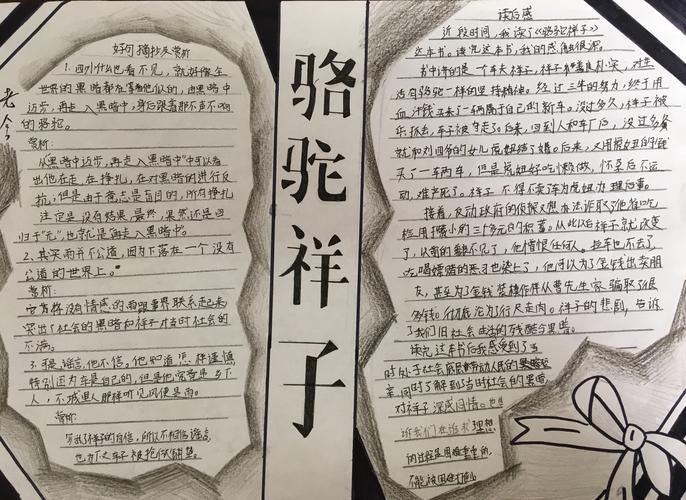 好句摘抄及赏析
1.四外什么也看不见，就好像全
世界的黑暗都在等着他似的，由黑暗中
迈步，再走入黑暗中，身后跟着那不声不响
的骆驼。
赏析：
从黑暗中迈步，再走入黑暗中"中可以看
出他在走，在挣扎，在对黑暗的进行反
抗，但是由于意志是盲目的，所有挣扎
注定是没有结果，最终，果然还是回
归于"无"，也就是再走入黑暗中。
2、其实雨并不公道，因为下落在一个没有
公道的世界上。
赏析：
它为将没有情感的雨跟世界联系起来
突出了社会的黑暗和祥子对当时社会的
不满。
3.于是谣言，他不信。他知道怎样谨慎
特别因为车是自己的，但是他究竟是乡下
人，不城里人那样听见风便是雨。
赏析：
写出了祥子的自信，所以不相信谣言
也为下文车子被抢做铺垫。
骆驼祥子
读后感
近段时间，我读了《骆驼祥子》
这本书。读完这本书，我的感触很深。
书中讲的是一个车夫祥子，祥子善良朴实，对生
活有骆驼一样的坚持精神。经过三年的努力，终于用
血汗钱买来了一辆属于自己的新车。没过多久，祥子被
乐抓去，车子被夺走了。后来，回到人和车厂后，没过多久
就和刘四爷的女儿虎妞结了婚。后来，又用虎妞的钱
买了一车两车，但是虎妞好吃懒做，怀孕后不运
动，难产死了。祥子不得不卖车为虎妞办理后事。
接着，反动政府的侦探又想办法诈取了他省吃
俭用攒下的三十多元的积蓄，从此以后祥子就改变
了，以前的勤不见了，他憎恨任何人。拉车也不去了
吃喝嫖赌的恶习也染上了，他可以为了金钱出卖朋
友，甚至为了金钱
行尸走肉。祥子的悲剧，告诉
了我们旧社会生活的残酷与黑暗。
读完这本书后我感受到了当
时处于社会底层劳动人民的
辛，同时了解到当时社会的黑暗，
对祥子深感同情。也告
诉我们在追求理想
的过程是困难重重的，
不能被困难打倒。